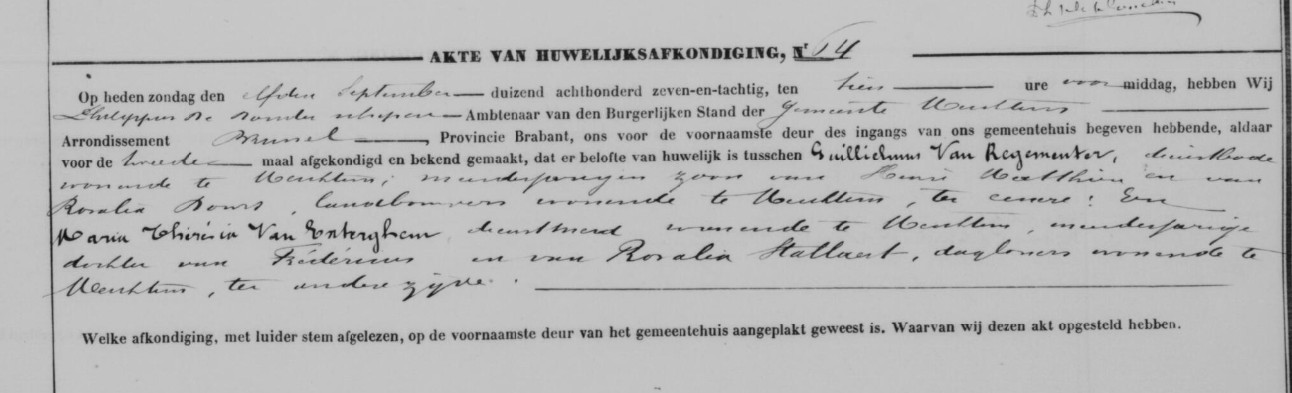 AKTE VAN HUWELIJKSAFKONDIGING, Nr 14
Op heden zondag den elfden September duizend achthonderd zeven-en-tachtig, ten tien ure voormiddag, hebben Wij
Philippus De schepen Ambtenaar van den Burgerlijken Stand der gemeente Merchtem
Arrondissement Brussel, Provincie Brabant, ons voor de voornaamste deur des ingangs van ons gemeentehuis begeven hebbende, aldaar
voor de tweede maal afgekondigd en bekend gemaakt, dat er belofte van huwelijk is tusschen Guillielmus Van Regementer,
wonende te Merchtem, meerderjarigen zoon van Henri Matthieu en van
Rosalia, landbouwers wonende te Merchtem, ter eenre; En
Maria Thérésia Van Enterghem dienstmeid wonende te Merchtem, minderjarige
dochter van Frédéricus en van Rosalia Stallaert, dagloners wonende te
Merchtem, ter andere zijde.
Welke afkondiging, met luider stem afgelezen, op de voornaamste deur van het gemeentehuis aangeplakt geweest is. Waarvan wij dezen akt opgesteld hebben.